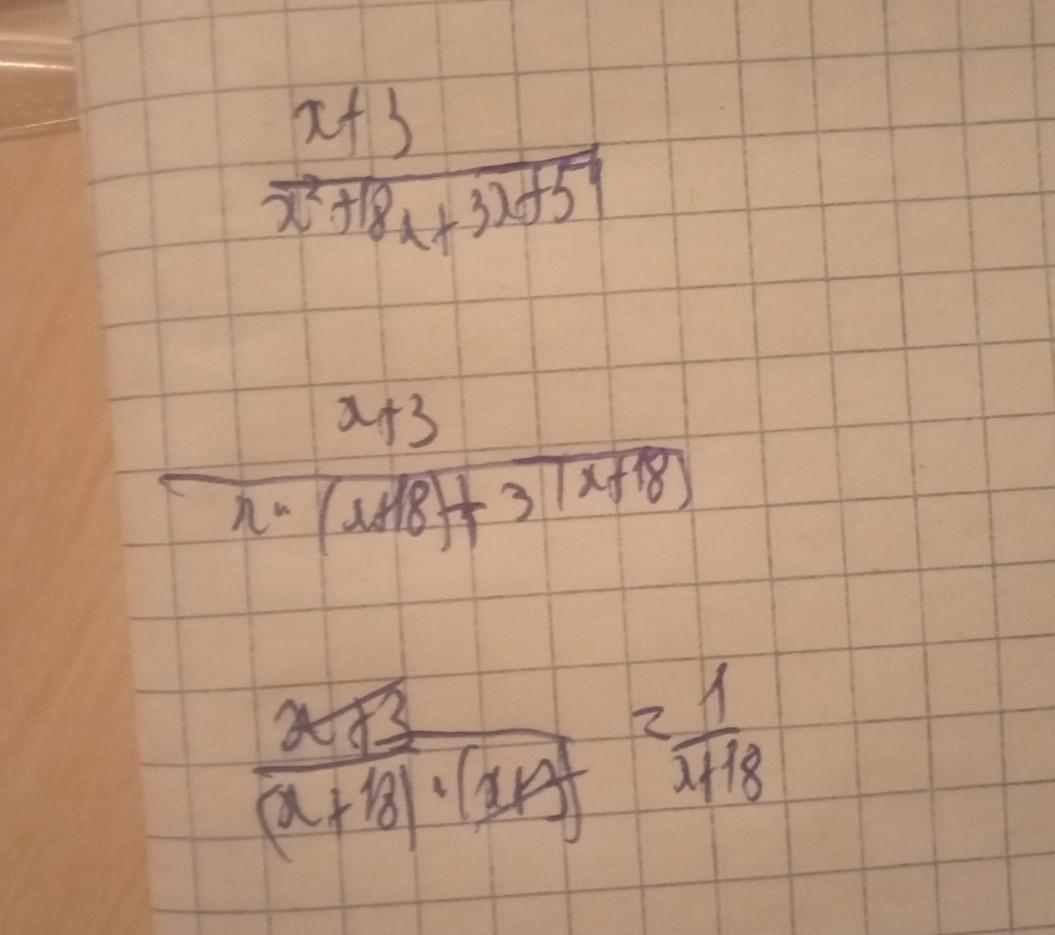 x+3
x²+18x+3x+54
x+3
x·(x+18)+3(x+18)
x+3 = 1
(x+18)·(x+3) x+18